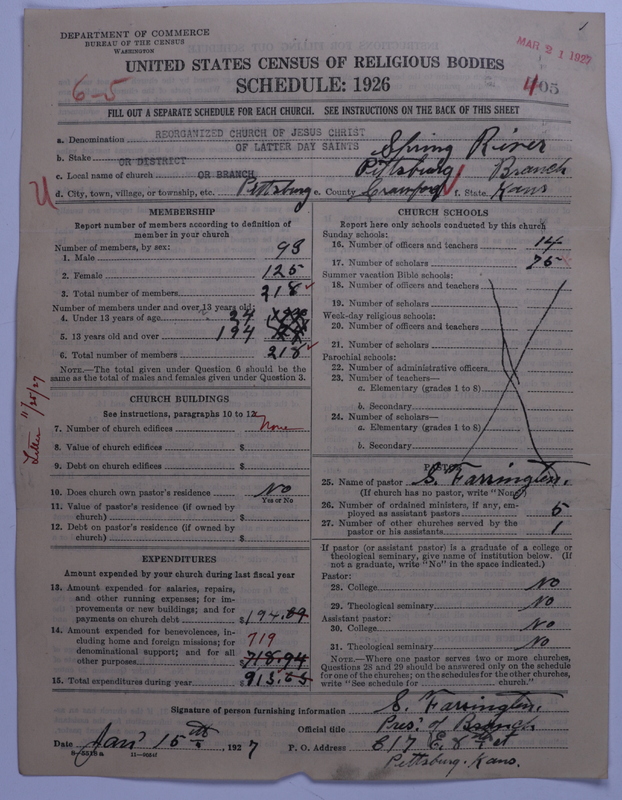 DEPARTMENT OF COMMERCE
BUREAU OF THE CENSUS
WASHINGTON
MAR 21 1927
UNITED STATES CENSUS OF RELIGIOUS BODIES
6-5
SCHEDULE: 1926
405
FILL OUT A SEPARATE SCHEDULE FOR EACH CHURCH. SEE INSTRUCTIONS ON THE BACK OF THIS SHEET
a. Denomination REORGANIZED CHURCH OF JESUS CHRIST
OF LATTER DAY SAINTS
b. Stake OR DISTRICT Spring River
c. Local name of church OR BRANCH Pittsburg Branch
d. City, town, village, or township, etc. Pittsburg e. County Crawford f. State Kans
MEMBERSHIP
Report number of members according to definition of
member in your church
Number of members, by sex:
1. Male 93
2. Female 125
3. Total number of members 218
Number of members under and over 13 years old:
4. Under 13 years of age 24
5. 13 years old and over 194
6. Total number of members 218
NOTE.—The total given under Question 6 should be the
same as the total of males and females given under Question 3.
CHURCH BUILDINGS
See instructions, paragraphs 10 to 12
7. Number of church edifices None
8. Value of church edifices $
9. Debt on church edifices $
10. Does church own pastor's residence No
Yes or No
11. Value of pastor's residence (if owned by
church) $
12. Debt on pastor's residence (if owned by
church) $
Letter 11/25/27
EXPENDITURES
Amount expended by your church during last fiscal year
13. Amount expended for salaries, repairs,
and other running expenses; for im-
provements or new buildings; and for
payments on church debt $194.69
14. Amount expended for benevolences, in-
cluding home and foreign missions; for
denominational support; and for all
other purposes 719
718.94
15. Total expenditures during year 913.63
CHURCH SCHOOLS
Report here only schools conducted by this church
Sunday schools:
16. Number of officers and teachers 14
17. Number of scholars 75
Summer vacation Bible schools:
18. Number of officers and teachers
19. Number of scholars
Week-day religious schools:
20. Number of officers and teachers
21. Number of scholars
Parochial schools:
22. Number of administrative officers
23. Number of teachers—
a. Elementary (grades 1 to 8)
b. Secondary
24. Number of scholars—
a. Elementary (grades 1 to 8)
b. Secondary
PASTOR
25. Name of pastor S. Farrington.
(If church has no pastor, write "None")
26. Number of ordained ministers, if any, em-
ployed as assistant pastors 5
27. Number of other churches served by the
pastor or his assistants 1
If pastor (or assistant pastor) is a graduate of a college or
theological seminary, give name of institution below. (If
not a graduate, write "No" in the space indicated.)
Pastor:
28. College No
29. Theological seminary No
Assistant pastor:
30. College No
31. Theological seminary No
NOTE.—Where one pastor serves two or more churches,
Questions 28 and 29 should be answered only on the schedule
for one of the churches; on the schedules for the other churches,
write "See schedule for church."
Signature of person furnishing information S. Farrington.
Official title Pres. of Branch
Date Jan. 15th, 1927 P. O. Address 817 E. 8th st
Pittsburg. Kans.
8-5518a 11-9054f